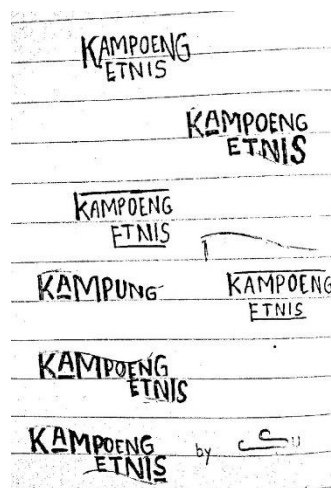 KAMPOENG
ETNIS
KAMPOENG
ETNIS
KAMPOENG
ETNIS
KAMPUNG
KAMPOENG
ETNIS
KAMPOENG
ETNIS
KAMPOENG
ETNIS
by